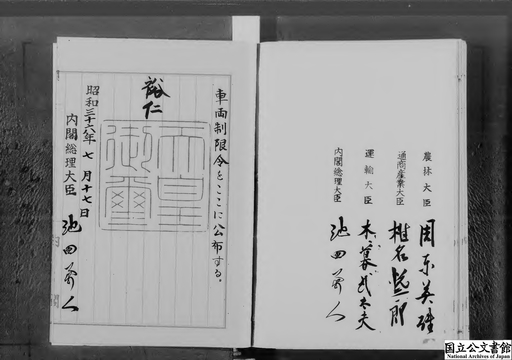 車両制限令をここに公布する。
裕仁
天皇御璽
昭和三十六年七月十七日
内閣総理大臣 池田勇人
農林大臣 周東英雄
通商産業大臣 椎名悦三郎
運輸大臣 木暮武太夫
内閣総理大臣 池田勇人
国立公文書館
National Archives of Japan